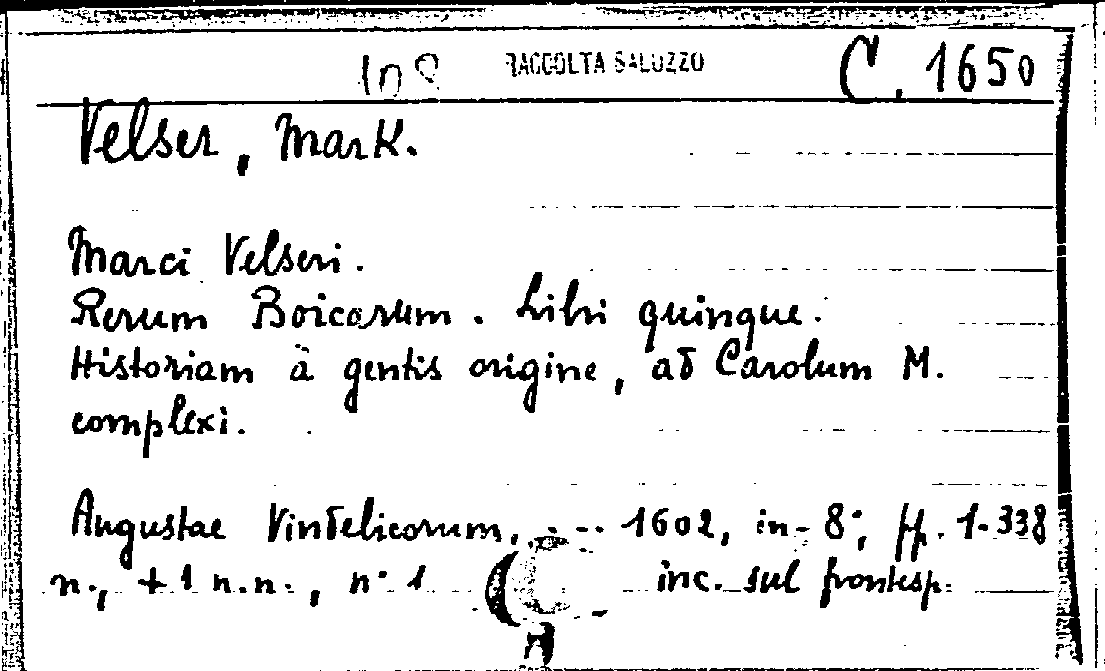 108 RACCOLTA SALUZZO C. 1650
Velser, Mark.
Marci Velseri.
Rerum Boicarum. Libri quinque.
Historiam à gentis origine, ad Carolum M.
complexi.
Augustae Vindelicorum, ... 1602, in-8°, pp. 1-338
n., + 1 n.n., n° 1 inc. sul frontesp.